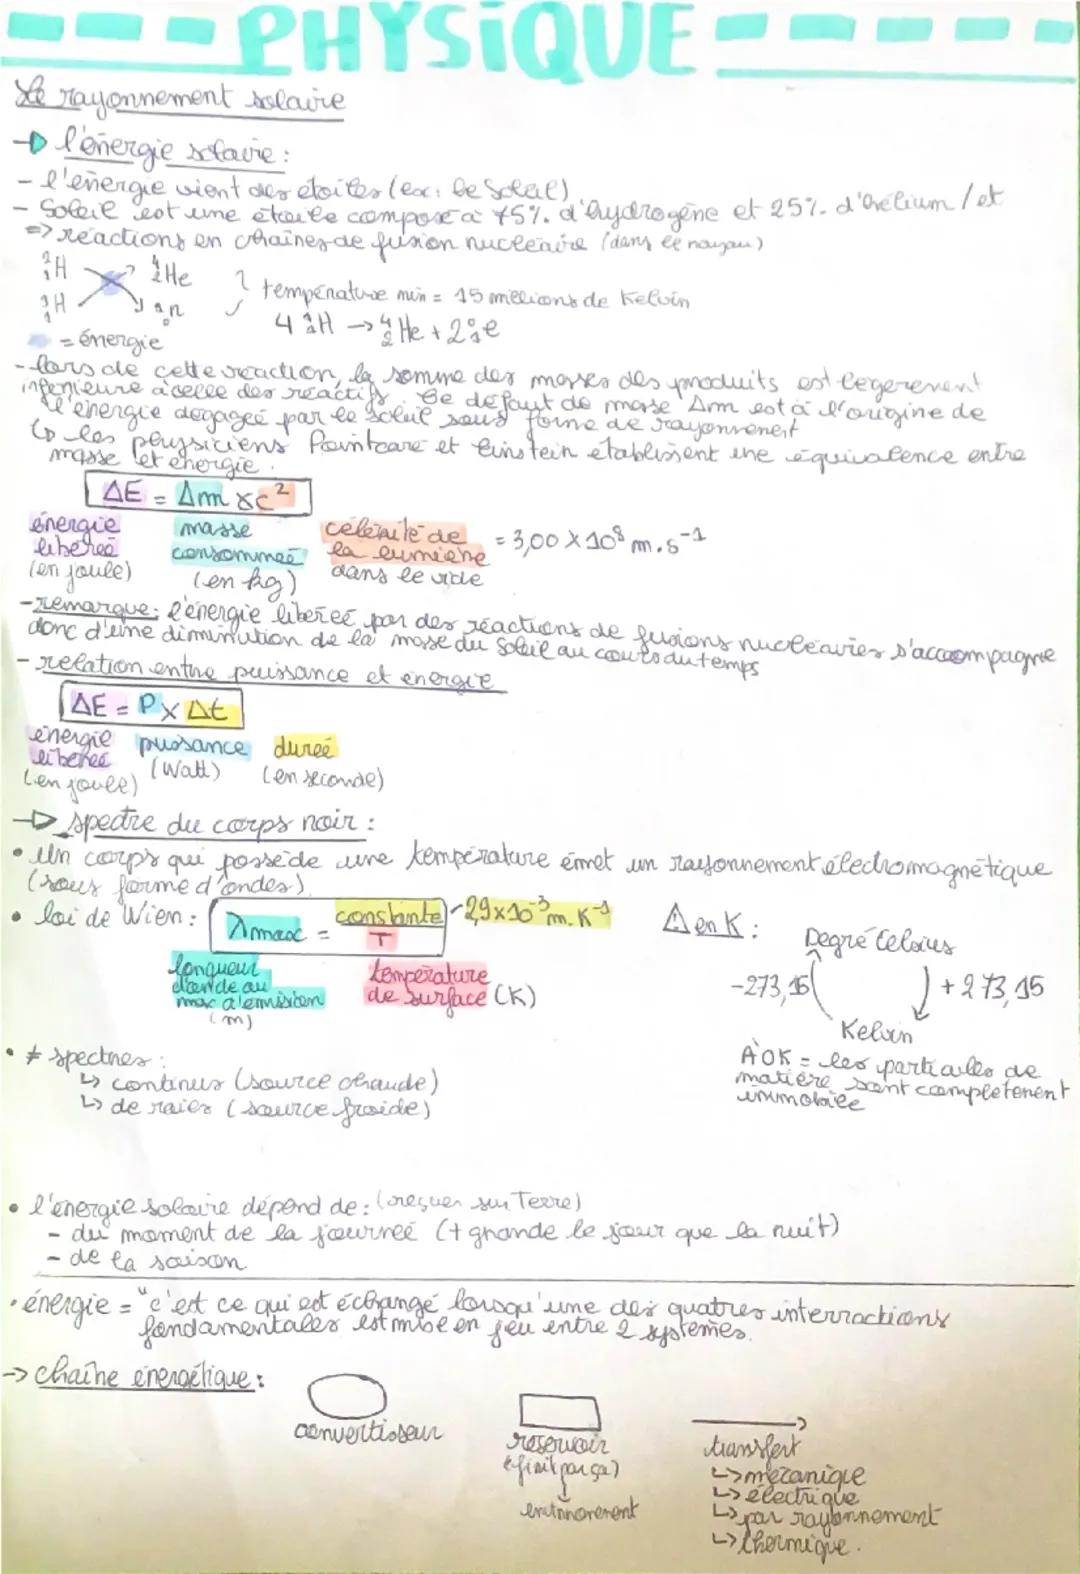 PHYSIQUE
Le rayonnement solaire
→ l'énergie solaire :
- l'énergie vient des étoiles (ex: le Soleil)
- Soleil est une étoile composé à 75% d'hydrogène et 25% d'hélium / et
=> réactions en chaînes de fusion nucléaire (dans le noyau)
²₁H ⁴₂He
³₁H ¹₀n
température min = 15 millions de Kelvin
4 ¹₁H → ⁴₂He + 2 ⁰₁e
= énergie
- lors de cette réaction, la somme des masses des produits est legerement
inferieure à celle des réactifs. Ce défaut de masse Δm est à l'origine de
l'énergie dégagée par le soleil sous forme de rayonnement
↳ les physiciens Pointcaré et Einstein établissent une équivalence entre
masse et énergie.
ΔE = Δm x c²
énergie libereé (en joule)
masse consommeé (en kg)
célérité de la lumière dans le vide
= 3,00 X 10⁸ m.s⁻¹
- remarque: l'énergie libereé par des réactions de fusions nucléaires s'accompagne
donc d'une dimminution de la masse du Soleil au cours du temps
- relation entre puissance et énergie
ΔE = P x Δt
énergie libereé (en joule)
puissance (Watt)
dureé (en seconde)
→ spectre du corps noir :
• Un corps qui possède une température émet un rayonnement électromagnétique
(sous forme d'ondes)
• loi de Wien : λmax = constante / T
2,9x10⁻³ m.K⁻¹
longueur d'onde au max d'émission (m)
température de surface (K)
⚠ en K :
Degré Celsius
-273,15
+ 273,15
Kelvin
À 0K = les particules de
matière sont complétement
immobile
• ≠ spectres :
↳ continus (source chaude)
↳ de raies (source froide)
• l'énergie solaire dépend de : (reçues sur Terre)
- du moment de la journeé (+ grande le jour que la nuit)
- de la saison
• énergie = "c'est ce qui est échangé lorsqu'une des quatres interractions
fondamentales est mise en jeu entre 2 systèmes.
-> chaîne énergétique :
convertisseur
réservoir
(finit par ça)
environnement
transfert
↳ mécanique
↳ électrique
↳ par rayonnement
↳ thermique.